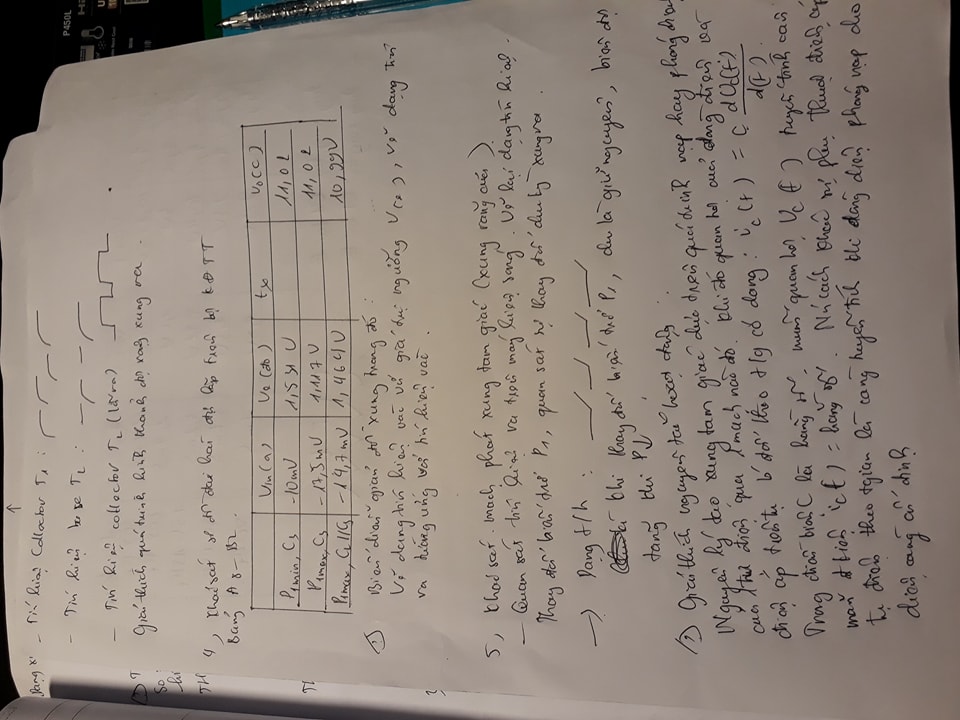 Dạng x
- Tín hiệu Collector T1 :
- Tín hiệu base T2 :
- Tín hiệu collector T2 (lối ra)
Giải thích quá trình hình thành độ rộng xung ra .
4, Khảo sát sơ đồ đa hài đợi lắp trên bộ KĐTT
Bảng A8-B2.
Vin(a) Vo(đo) tx Vo(c)
P1min, C3 -10mV 1,531 V 11,02
P1max, C3 -17,5mV 1,117V 11,02
P1max, C2//C3 -14,7mV 1,464V 10,99V
? Biểu diễn giản đồ xung trong đó :
Vẽ dạng tín hiệu vào với giá trị ngưỡng V(a), vẽ dạng tín
ra tương ứng với tín hiệu vào.
5, Khảo sát mạch phát xung tam giác (xung răng cưa)
- Quan sát tín hiệu ra trên máy hiện sóng. Vẽ lại dạng tín hiệu.
Thay đổi biến trở P1, quan sát sự thay đổi chu kỳ xung ra.
-> Dạng t/h :
khi thay đổi biến trở P1, chu kì giữ nguyên, biên độ
tăng khi P↓
? Giải thích nguyên tắc hoạt động.
Nguyên lý tạo xung tam giác dựa trên quá trình nạp hay phóng điện
của 1 tụ điện qua 1 mạch nào đó. Khi đó quan hệ của dòng điện và
điện áp trên tụ biến đổi theo t/g có dạng : ic(t) = C dUc(t)/d(t)
Trong điều kiện C là hằng số, muốn quan hệ Uc(t) tuyến tính cần
mãn đ kiện ic(t) = hằng số. Nói cách khác sự phụ thuộc điện áp
tụ điện theo tgian là càng tuyến tính khi dòng điện phóng nạp cho
điện càng ổn định
P450L